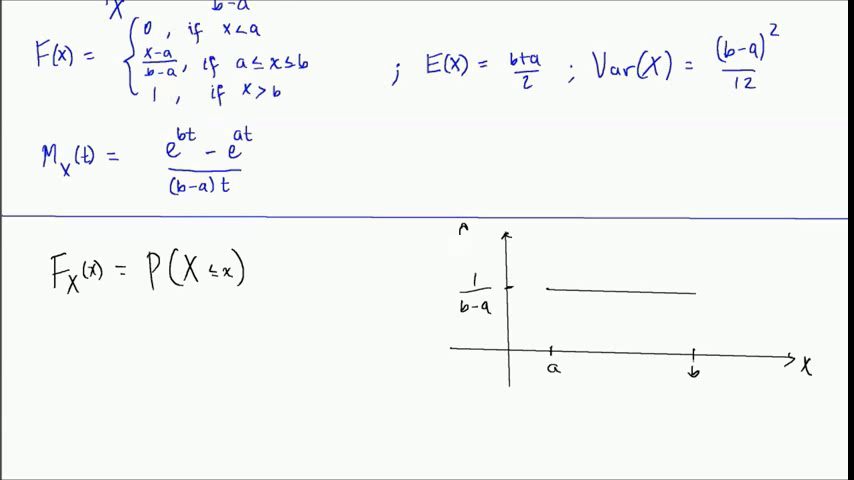 X b-a
F(x) = { 0 , if x<a
x-a/b-a , if a≤x≤b
1 , if x>b
; E(x) = b+a/2 ; Var(X) = (b-a)²/12
M_X(t) = e^bt - e^at / (b-a)t
F_X(x) = P(X ≤ x)
1/b-a
a b X